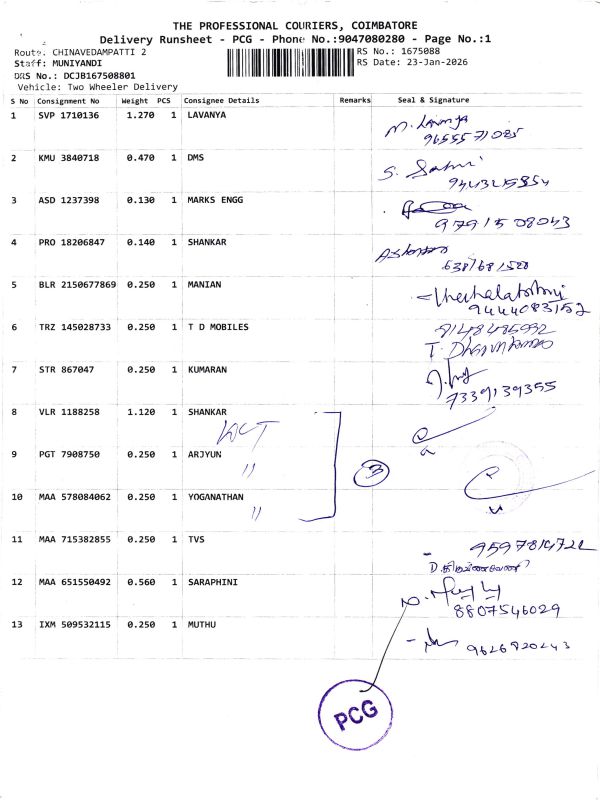 THE PROFESSIONAL COURIERS, COIMBATORE
Delivery Runsheet - PCG - Phone No.:9047080280 - Page No.:1
Route: CHINAVEDAMPATTI 2
RS No.: 1675088
Staff: MUNIYANDI
RS Date: 23-Jan-2026
DRS No.: DCJB167508801
Vehicle: Two Wheeler Delivery
S No Consignment No Weight PCS Consignee Details Remarks Seal & Signature
1 SVP 1710136 1.270 1 LAVANYA
M. Lavanya
9655571085
2 KMU 3840718 0.470 1 DMS
S.
3 ASD 1237398 0.130 1 MARKS ENGG
9791508043
4 PRO 18206847 0.140 1 SHANKAR
5 BLR 2150677869 0.250 1 MANIAN
9444083152
6 TRZ 145028733 0.250 1 T D MOBILES
7 STR 867047 0.250 1 KUMARAN
7339139355
8 VLR 1188258 1.120 1 SHANKAR
9 PGT 7908750 0.250 1 ARJYUN
"
3
10 MAA 578084062 0.250 1 YOGANATHAN
"
11 MAA 715382855 0.250 1 TVS
12 MAA 651550492 0.560 1 SARAPHINI
8807546029
13 IXM 509532115 0.250 1 MUTHU
9626820243
PCG